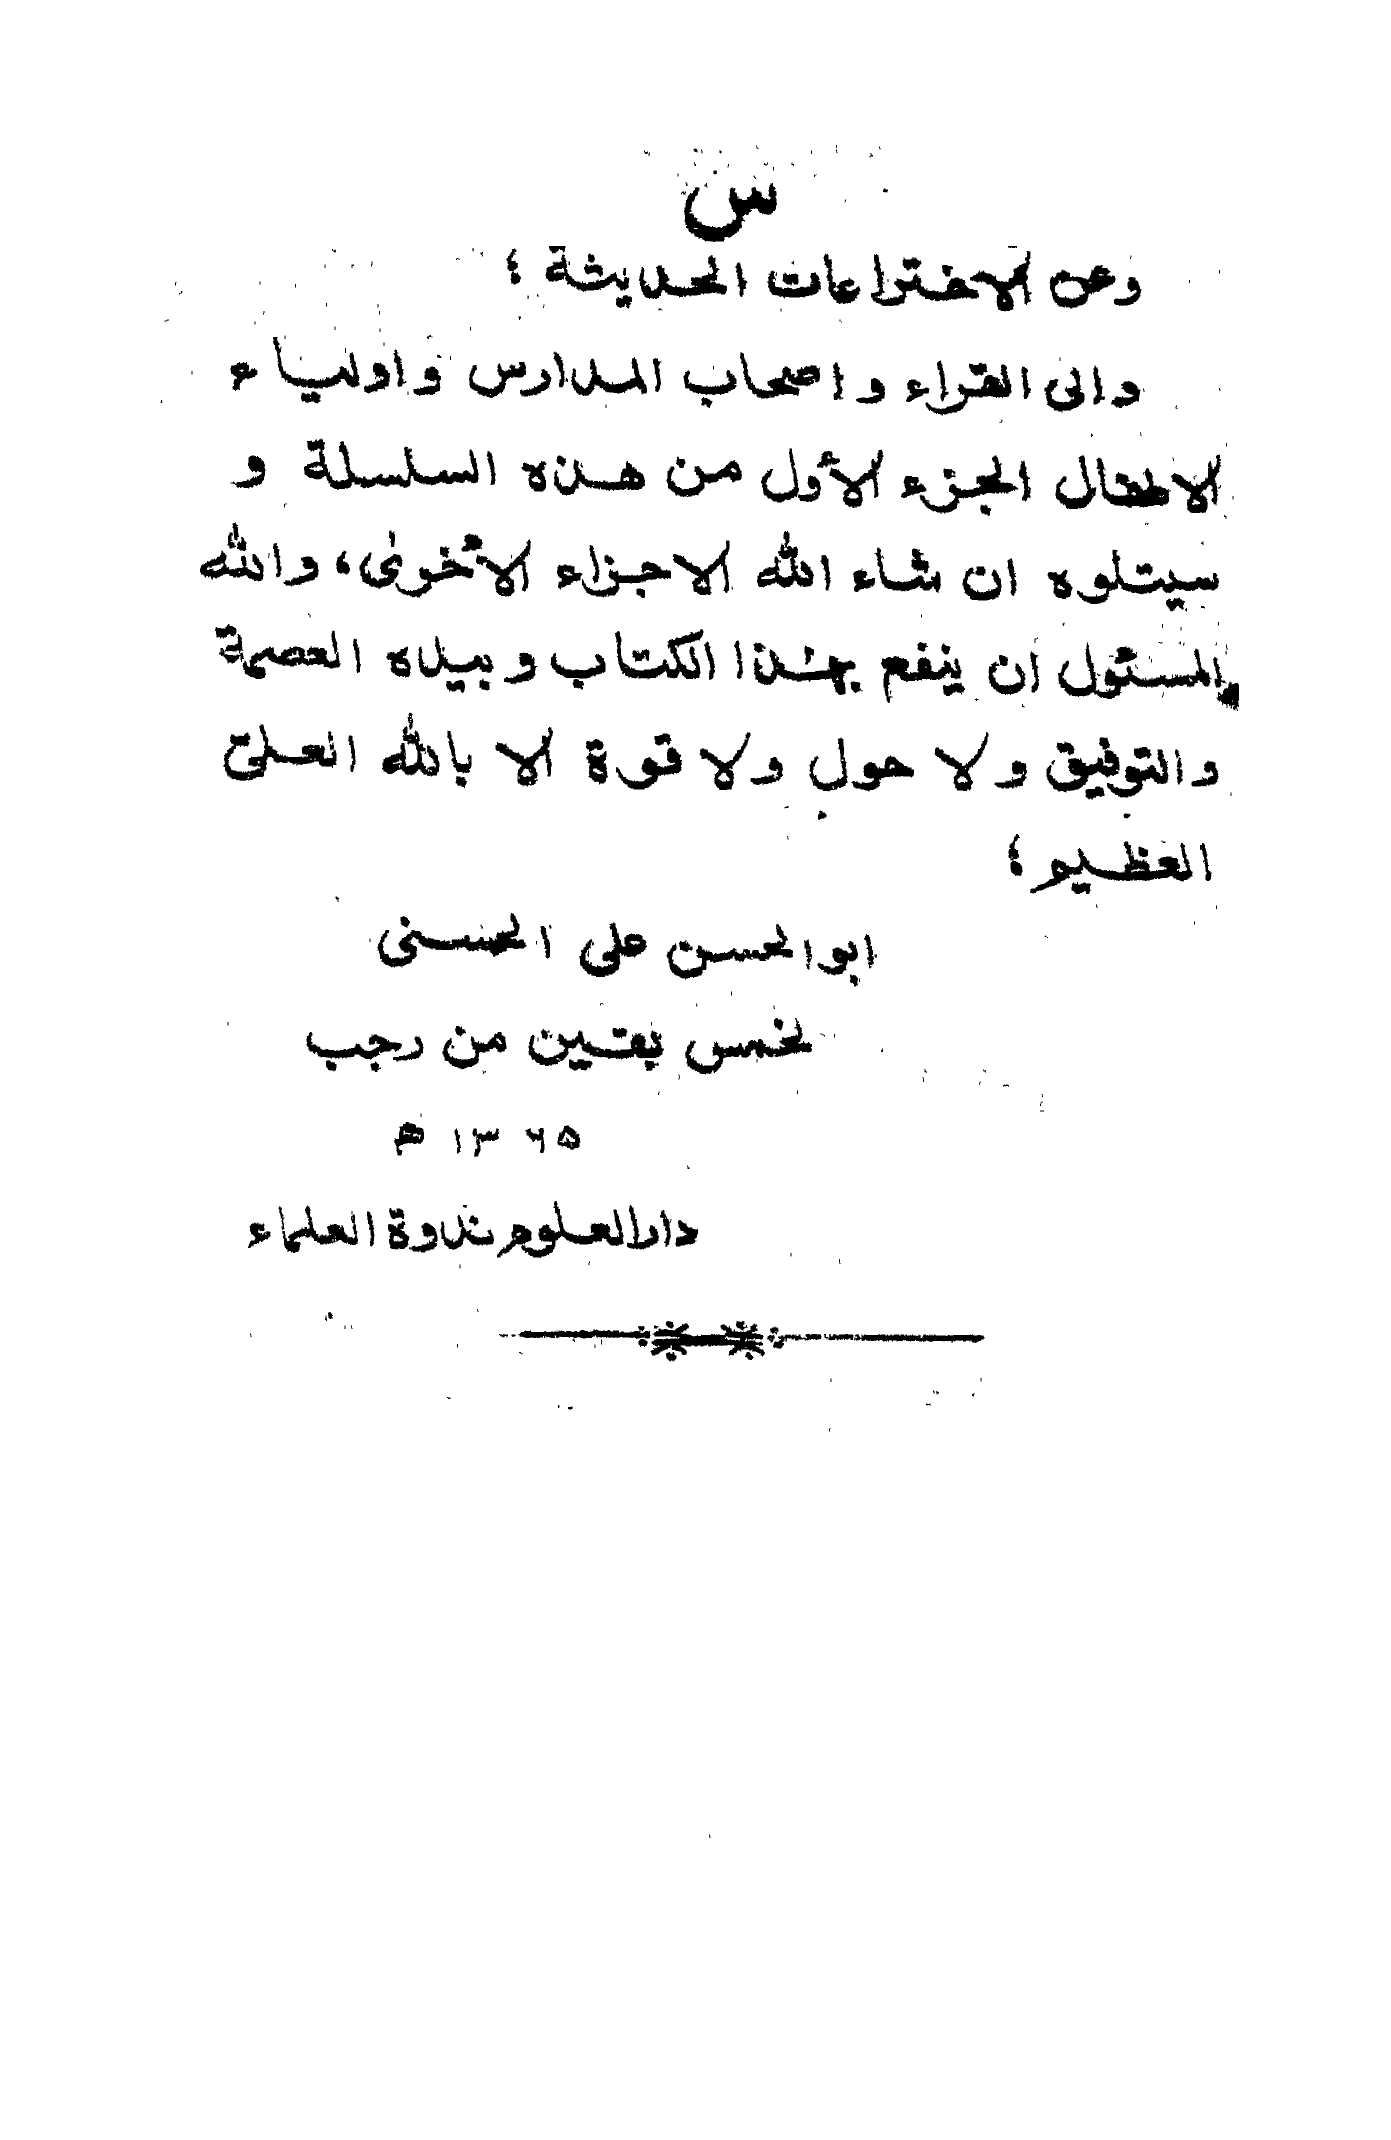 س
وعن الاختراعات الحديثة ؛
والى القراء و اصحاب المدارس و اولياء
الاطفال الجزء الأول من هذه السلسلة و
سيتلوه ان شاء الله الاجزاء الأخرى، والله
المسئول ان ينفع بهٰذا الكتاب و بيده العصمة
و التوفيق و لا حول ولا قوة الا بالله العلى
العظيم ؛
ابوالحسن على الحسنى
لخمس بقين من رجب
۱۳۶۵ ھ
دارالعلوم ندوة العلماء